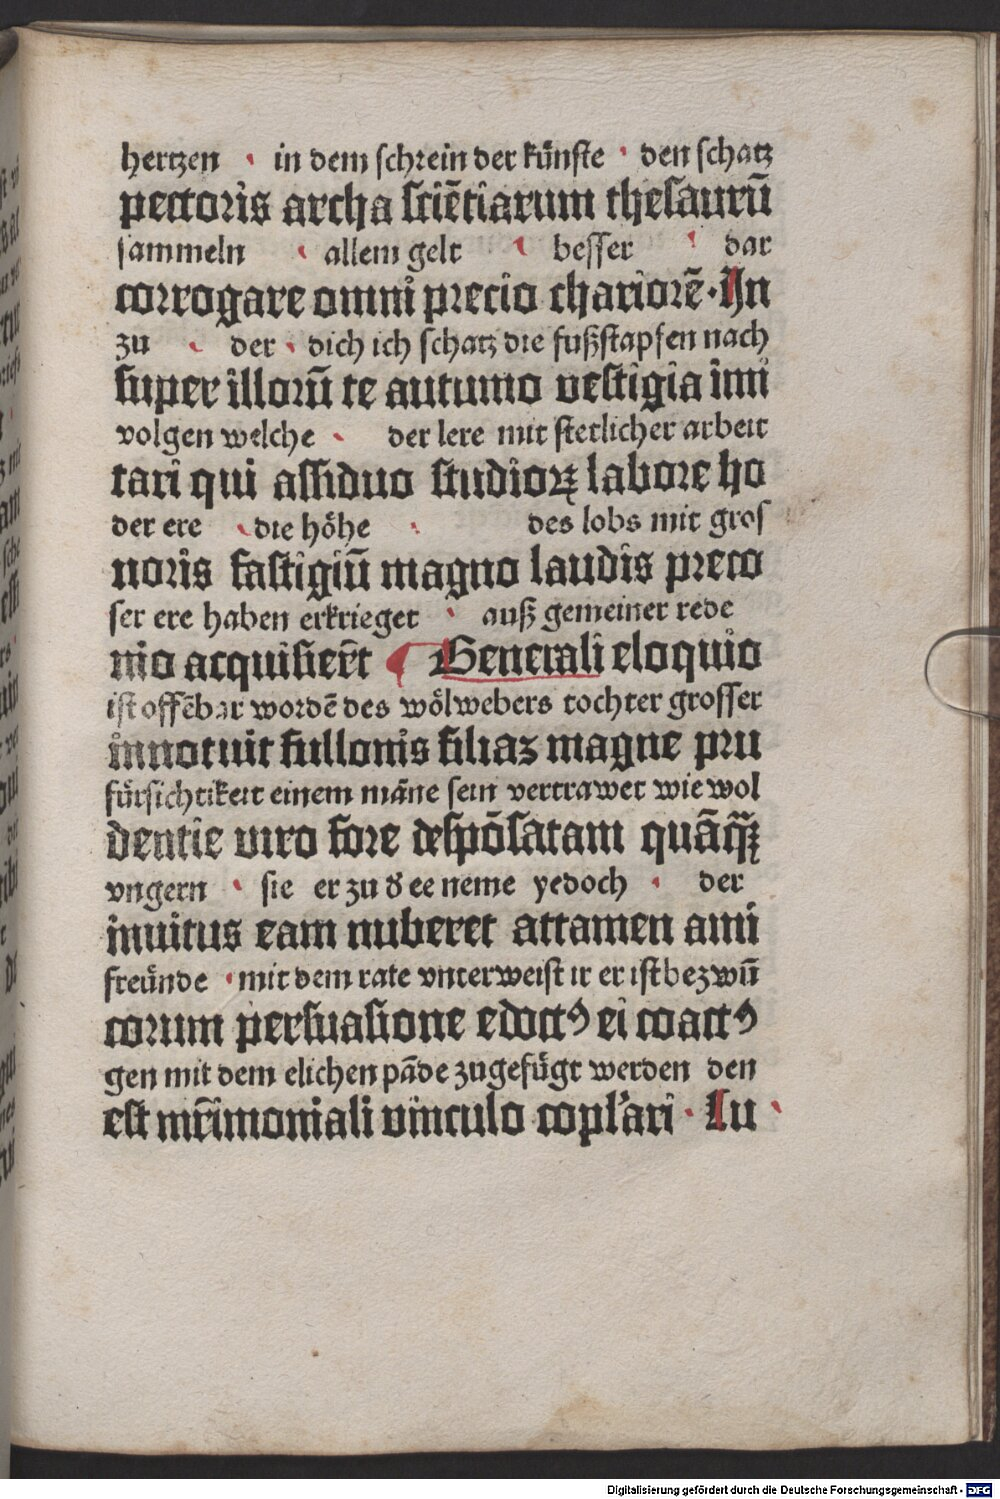 hertzen · in dem schrein der künste · den schatz
pectoris archa sciētiarum thesaurū
sammeln · allem gelt · besser · dar
corrogare omni precio chariorē · In
zu · der · dich ich schatz die fußstapfen nach
super illorū te autumo vestigia imi
volgen welche · der lere mit stetlicher arbeit
tari qui assiduo studioꝝ labore ho
der ere · die höhe · des lobs mit gros
noris fastigiū magno laudis preco
ser ere haben erkrieget · auß gemeiner rede
nio acquisierēt ¶ Generali eloquio
ist offēbar wordē des wölwebers tochter grosser
innotuit fullonis filiaz magne pru
fürsichtikeit einem māne sein vertrawet wie wol
dentie viro fore despōsatam quāqꝫ
vngern · sie er zu d̕ ee neme yedoch · der
inuitus eam nuberet attamen ami
freünde · mit dem rate vnterweist ir er ist bezwū
corum persuasione edoctꝰ ei coactꝰ
gen mit dem elichen pāde zugefügt werden den
est mr̄imoniali vinculo copl'ari · Iu ·
Digitalisierung gefördert durch die Deutsche Forschungsgemeinschaft - DFG